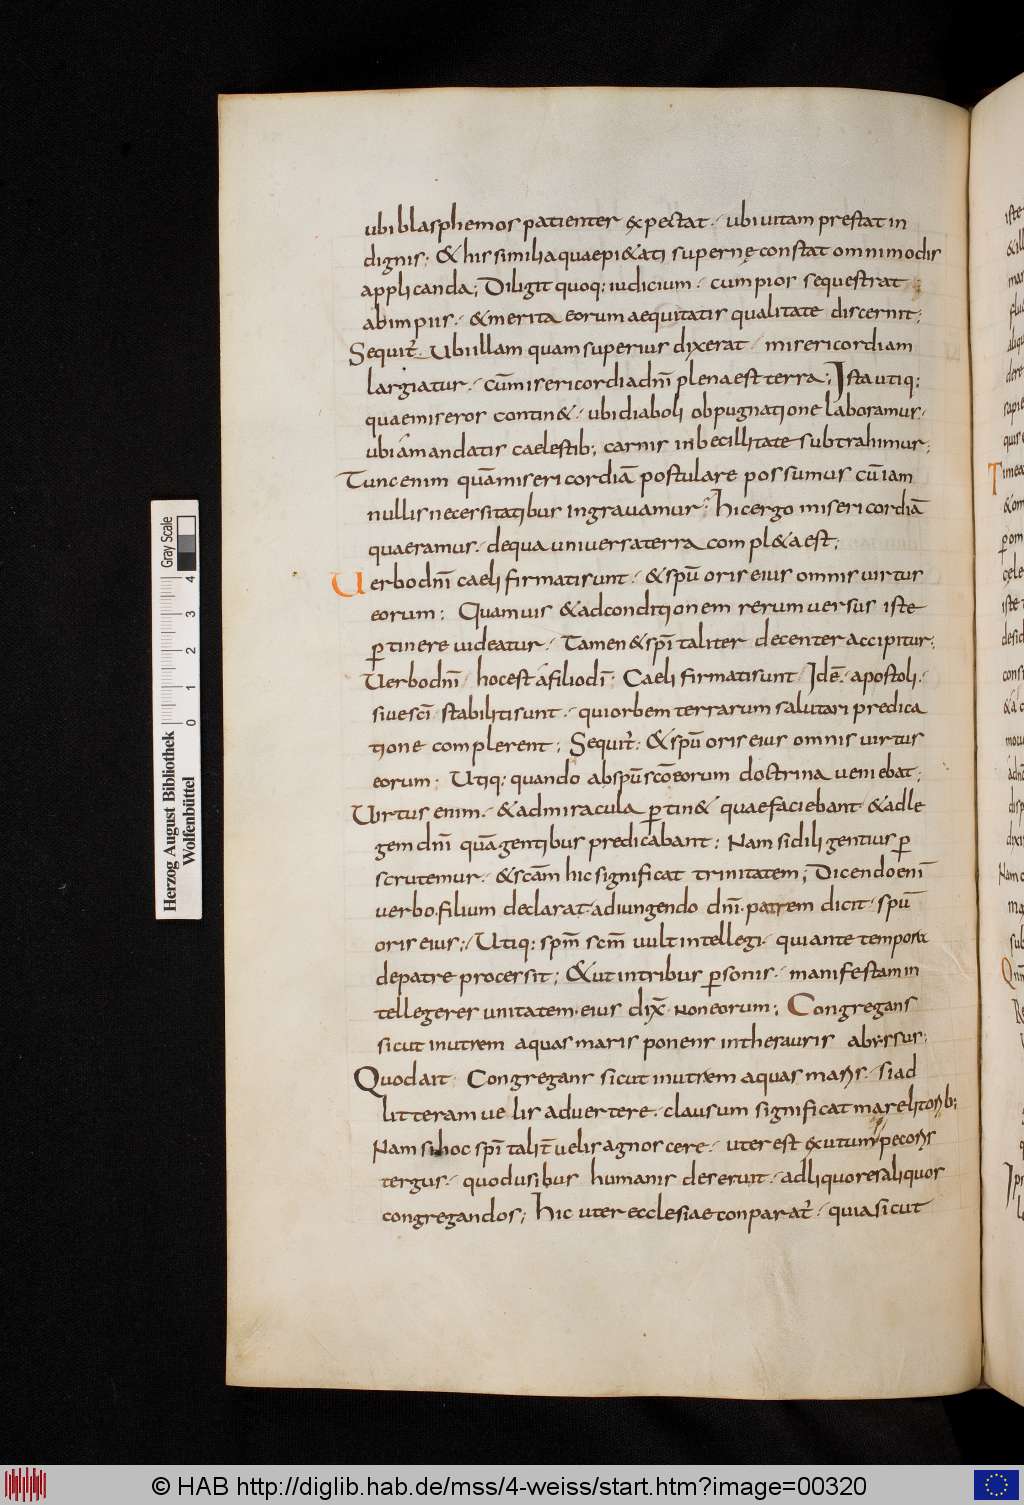 ubi blasphemos patienter expectat. ubi uitam prestat in
dignis; & his similia quae pi&ati supernę constat omnimodis
applicanda; Diligit quoq; iudicium. cum pios sequestrat
ab impiis. & merita eorum aequitatis qualitate discernit;
Sequit᷑. Ubi illam quam superius dixerat. misericordiam
largiatur. cū misericordia dnī plena est terra; Ista utiq;
quae miseros contin&. ubi diaboli obpugnatione laboramus.
ubi á mandatis caelestib; carnis inbecillitate subtrahimur;
Tunc enim quā misericordiā postulare possumus cū iam
nullis necessitatibus ingrauamur? hic ergo misericordiā
quaeramus. de qua uniuersa terra compl&a est;
Uerbo dnī caeli firmati sunt. & spū oris eius omnis uirtus
eorum; Quamuis & ad conditionem rerum uersus iste
ꝑtinere uideatur. Tamen & spī taliter decenter accipitur;
Uerbo dnī. hoc est á filio dī. Caeli firmati sunt. Idē. apostoli.
siue scī stabiliti sunt. qui orbem terrarum salutari predica
tione complerent; Sequit᷑; & spū oris eius omnis uirtus
eorum; Utiq; quando ab spū scō eorum doctrina ueniebat;
Uirtus enim. & ad miracula ꝑtin& quae faciebant & ad le
gem dnī quā gentibus predicabant; Nam si diligentius ꝑ
scrutemur. & scām hic significat trinitatem; Dicendo enī
uerbo. filium declarat. adiungendo dnī. patrem dicit. spū
oris eius; Utiq; spm̄ scm̄ uult intellegi. qui ante tempora
de patre processit; & ut in tribus ꝑsonis. manifestam in
tellegeres unitatem. eius dix̄. non eorum; Congregans
sicut in utrem aquas maris ponens in thesauris abyssus;
Quod ait. Congregans sicut in utrem aquas maris. si ad
litteram uelis aduertere. clausum significat mare litorib;
Nam si hoc spī talit̄ uelis agnoscere. uter est exutum pecoris
tergus. quod usibus humanis deseruit. ad liquores aliquos
congregandos; hic uter ecclesiae conparat᷑. quia sicut
Herzog August Bibliothek
Wolfenbüttel
0 1 2 3 4
Gray Scale
© HAB http://diglib.hab.de/mss/4-weiss/start.htm?image=00320